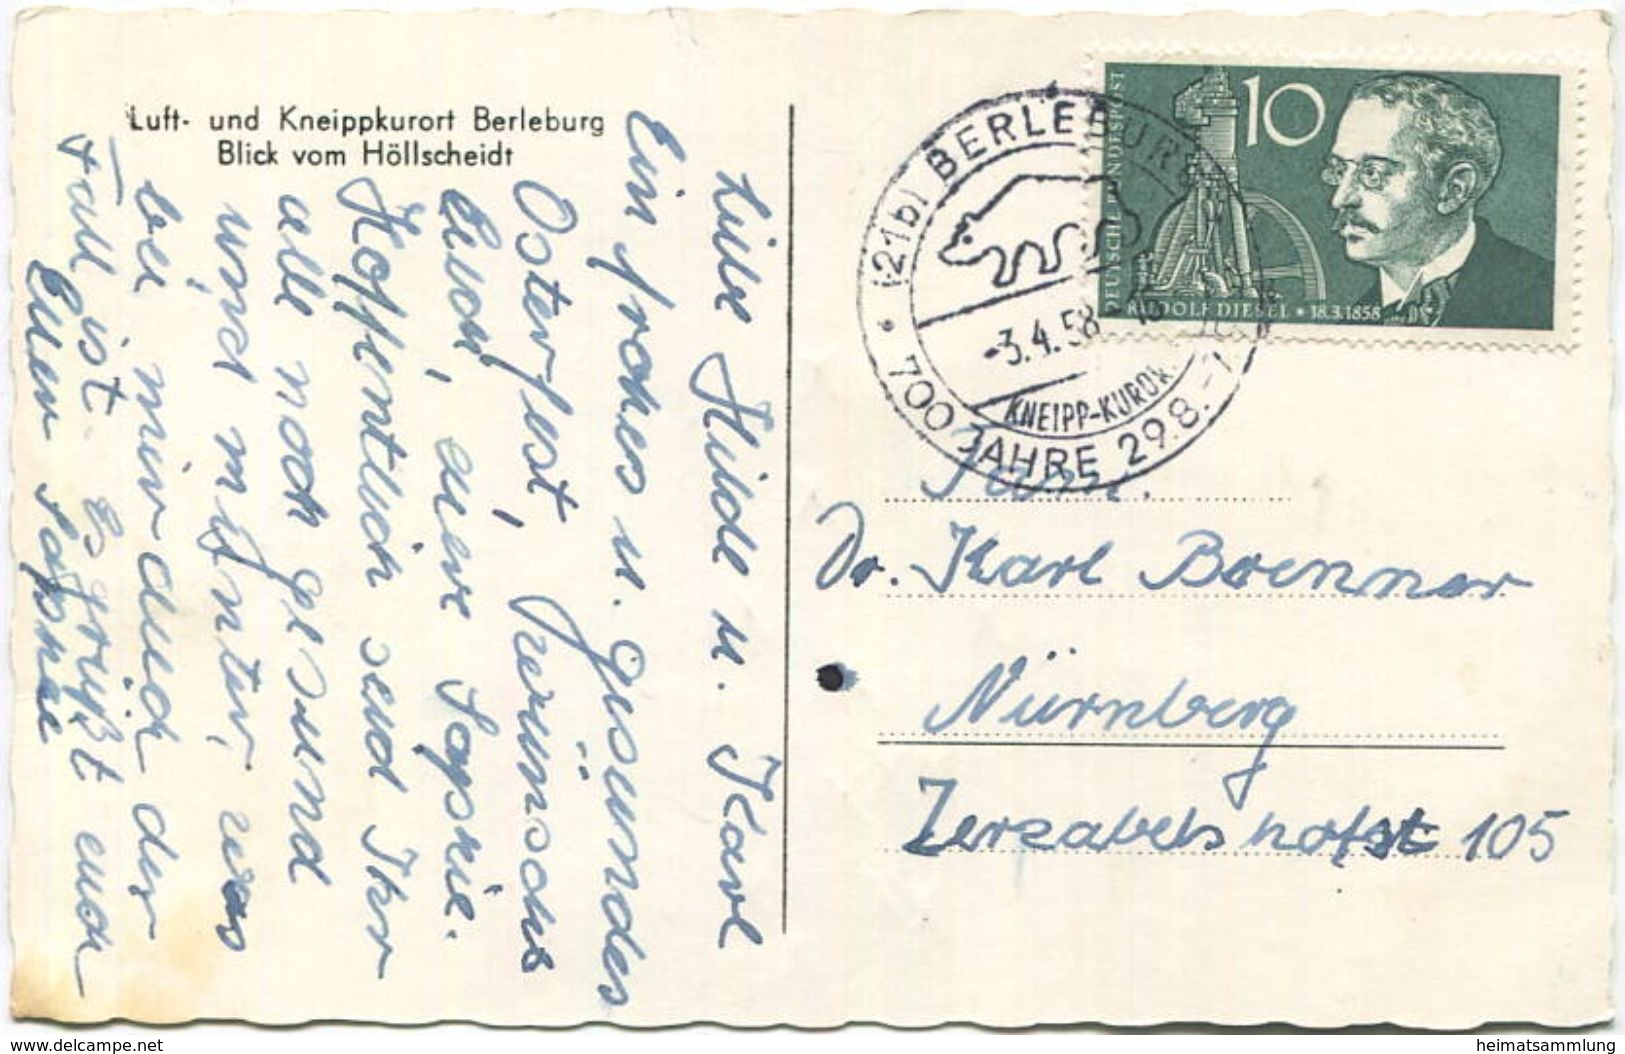 Luft- und Kneippkurort Berleburg
Blick vom Höllscheidt
Liebe Hilde u. Karl
Ein frohes u. gesundes
Osterfest, wünscht
Euch, eure Sophie.
Hoffentlich seid Ihr
alle noch gesund
und munter, was
bei mir auch der
Fall ist. Es grüßt euch
Eure Sophie
(21b) BERLEBURG
-3.4.58
KNEIPP-KURORT
* 700 JAHRE 29.8.-
DEUTSCHE BUNDESPOST
10
RUDOLF DIESEL * 18.3.1858
Fam.
Dr. Karl Brenner
Nürnberg
Zerzabelshofst 105
www.delcampe.net
heimatsammlung